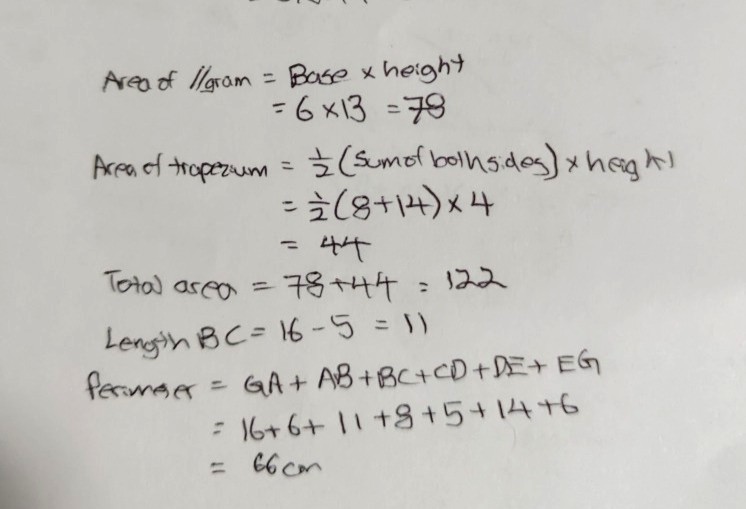 Area of //gram = Base x height
= 6 x 13 = 78
Area of trapezium = 1/2 (sum of both sides) x height
= 1/2 (8+14) x 4
= 44
Total area = 78+44 = 122
Length BC = 16 - 5 = 11
Perimeter = GA + AB + BC + CD + DE + EG
= 16+6+ 11 +8+5+14+6
= 66 cm